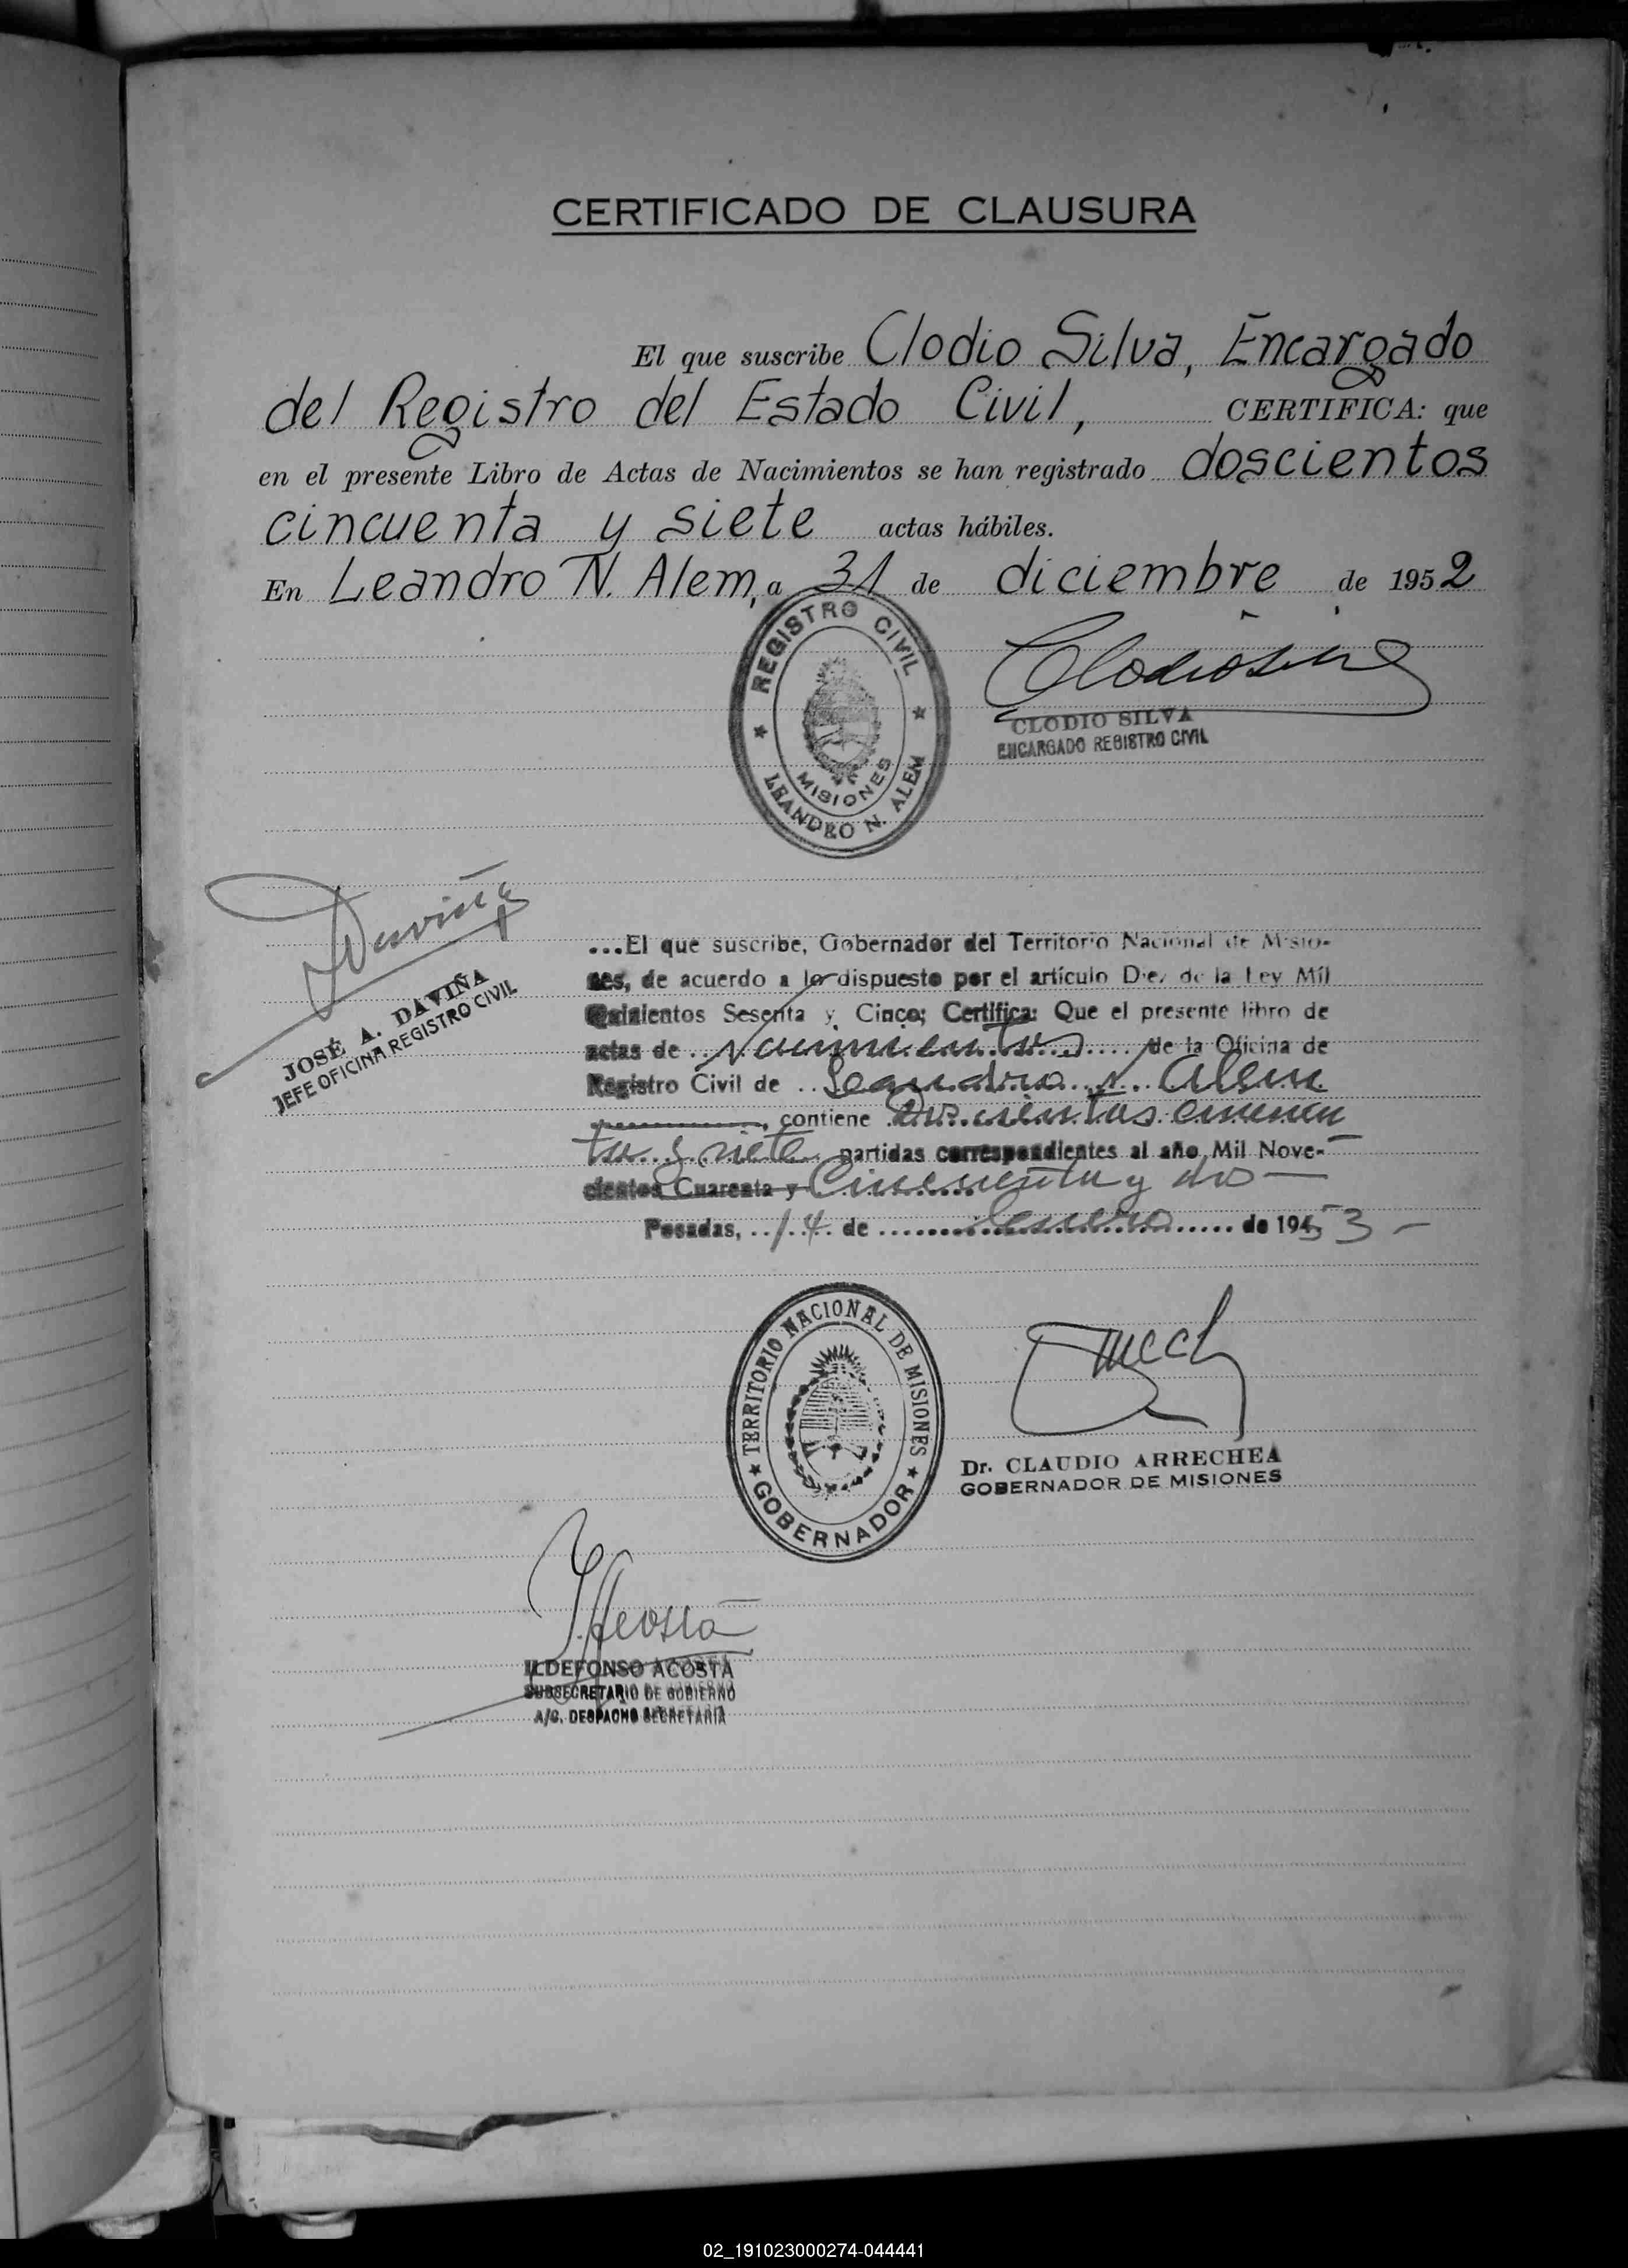 CERTIFICADO DE CLAUSURA
El que suscribe Clodio Silva, Encargado
del Registro del Estado Civil, CERTIFICA: que
en el presente Libro de Actas de Nacimientos se han registrado doscientos
cincuenta y siete actas hábiles.
En Leandro N. Alem, a 31 de diciembre de 1952
REGISTRO CIVIL
MISIONES
LEANDRO N. ALEM
Clodio Silva
CLODIO SILVA
ENCARGADO REGISTRO CIVIL
Daviña
JOSÉ A. DAVIÑA
JEFE OFICINA REGISTRO CIVIL
...El que suscribe, Gobernador del Territorio Nacional de Misio-
nes, de acuerdo a lo dispuesto por el artículo Diez de la Ley Mil
Quinientos Sesenta y Cinco; Certifica: Que el presente libro de
actas de Nacimientos de la Oficina de
Registro Civil de Leandro N. Alem
, contiene Doscientos cincuen
ta y siete partidas correspondientes al año Mil Nove-
cientos Cuarenta y Cincuenta y dos
Posadas, 14 de enero de 19453
TERRITORIO NACIONAL DE MISIONES
GOBERNADOR
Dr. CLAUDIO ARRECHEA
GOBERNADOR DE MISIONES
I. Acosta
ILDEFONSO ACOSTA
SUBSECRETARIO DE GOBIERNO
A/C. DESPACHO SECRETARIA
02_191023000274-044441